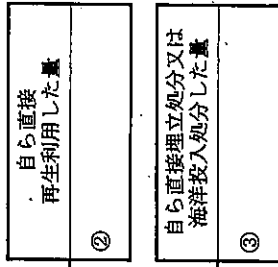 自ら直接
再生利用した量
②
自ら直接埋立処分又は
海洋投入処分した量
③